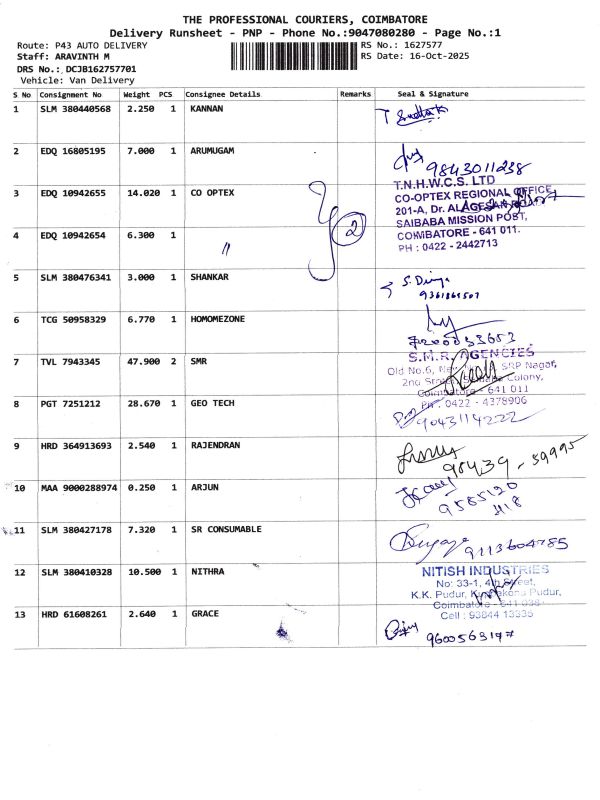 THE PROFESSIONAL COURIERS, COIMBATORE
Delivery Runsheet - PNP - Phone No.:9047080280 - Page No.:1
Route: P43 AUTO DELIVERY
RS No.: 1627577
Staff: ARAVINTH M
RS Date: 16-Oct-2025
DRS No.: DCJB162757701
Vehicle: Van Delivery
S No Consignment No Weight PCS Consignee Details Remarks Seal & Signature
1 SLM 380440568 2.250 1 KANNAN
2 EDQ 16805195 7.000 1 ARUMUGAM
9843011238
3 EDQ 10942655 14.020 1 CO OPTEX
2
T.N.H.W.C.S. LTD
CO-OPTEX REGIONAL OFFICE
201-A, Dr. ALAGESAN ROAD
SAIBABA MISSION POST,
COIMBATORE - 641 011.
PH : 0422 - 2442713
4 EDQ 10942654 6.300 1 "
5 SLM 380476341 3.000 1 SHANKAR
6 TCG 50958329 6.770 1 HOMOMEZONE
7 TVL 7943345 47.900 2 SMR
S.M.R. AGENCIES
Old No.6, SRP Nagar,
2nd Street, Colony,
Coimbatore - 641 011
Ph : 0422 - 4378906
8 PGT 7251212 28.670 1 GEO TECH
9043114222
9 HRD 364913693 2.540 1 RAJENDRAN
98439-59995
10 MAA 9000288974 0.250 1 ARJUN
9585120
11 SLM 380427178 7.320 1 SR CONSUMABLE
9113604785
12 SLM 380410328 10.500 1 NITHRA
NITISH INDUSTRIES
No: 33-1, 4th Street,
K.K. Pudur, Pudur,
Coimbatore - 641 038
Cell : 93644 13335
13 HRD 61608261 2.640 1 GRACE
9600563147